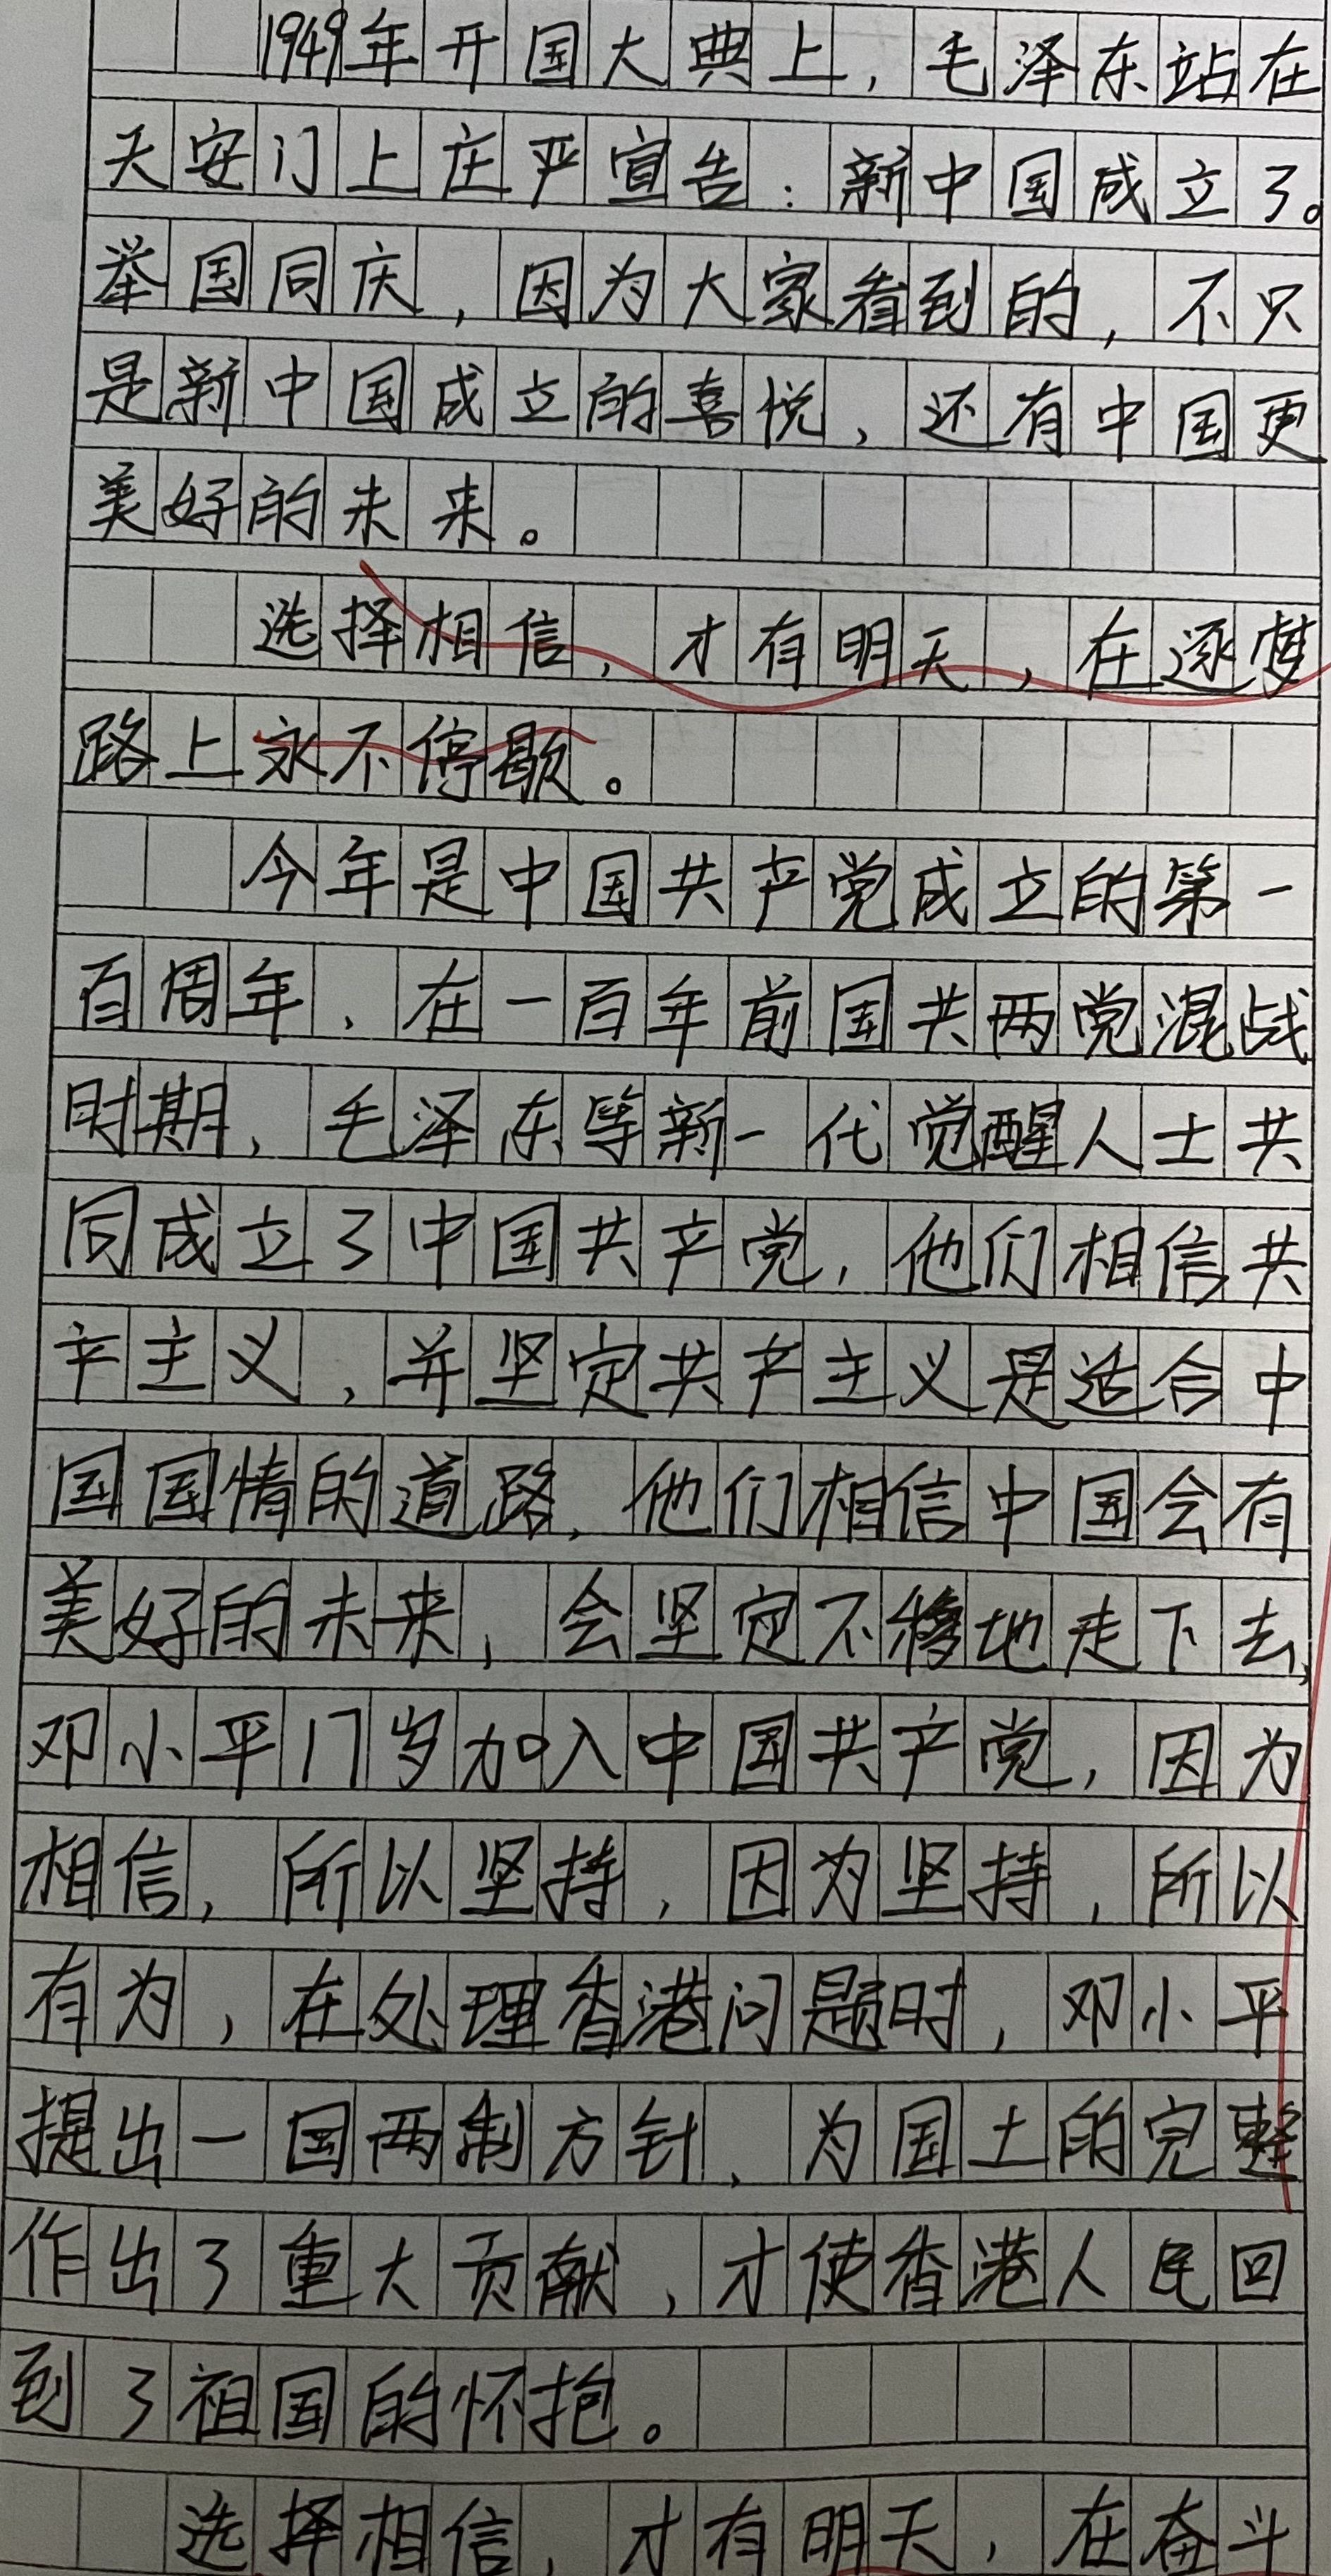 1949年开国大典上，毛泽东站在
天安门上庄严宣告：新中国成立了。
举国同庆，因为大家看到的，不只
是新中国成立的喜悦，还有中国更
美好的未来。
选择相信，才有明天，在逐梦
路上永不停歇。
今年是中国共产党成立的第一
百周年，在一百年前国共两党混战
时期，毛泽东等新一代觉醒人士共
同成立了中国共产党，他们相信共
产主义，并坚定共产主义是适合中
国国情的道路，他们相信中国会有
美好的未来，会坚定不移地走下去，
邓小平17岁加入中国共产党，因为
相信，所以坚持，因为坚持，所以
有为，在处理香港问题时，邓小平
提出一国两制方针，为国土的完整
作出了重大贡献，才使香港人民回
到了祖国的怀抱。
选择相信，才有明天，在奋斗